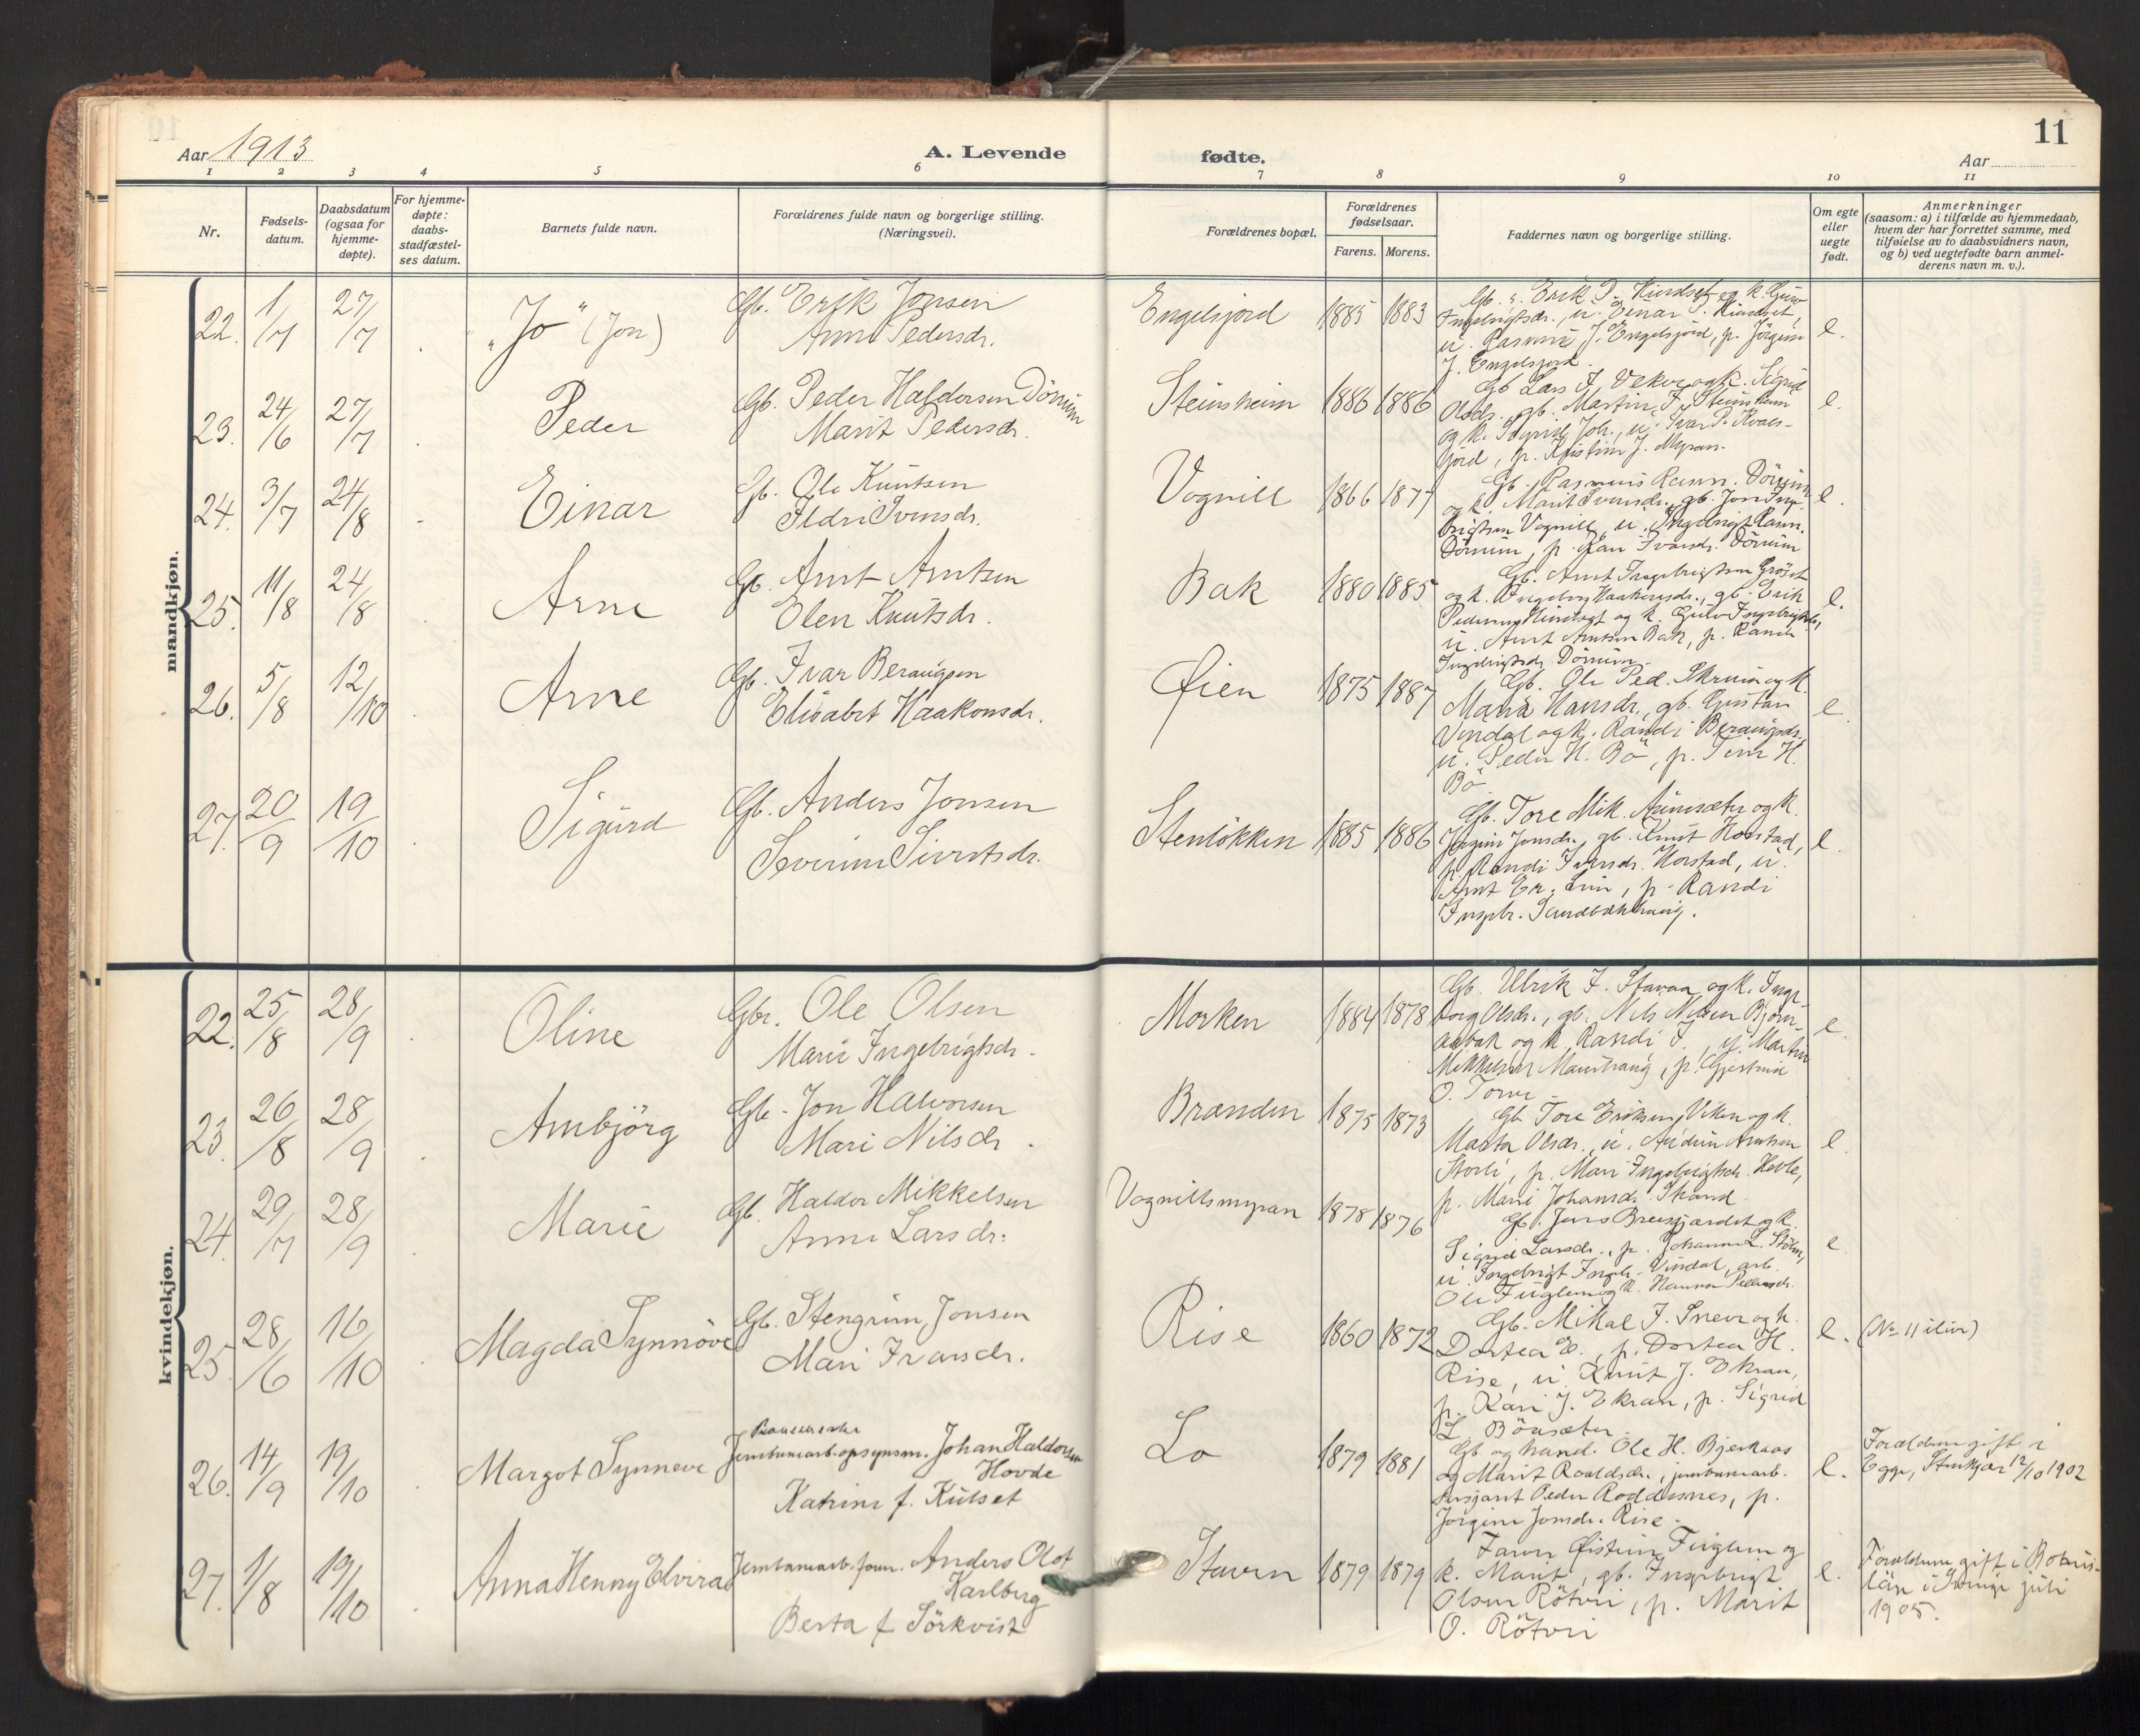 Aar 1913
A. Levende fødte.
11
Aar
1 2 3 4 5 6 7 8 9 10 11
Nr.
Fødsels-
datum.
Daabsdatum
(ogsaa for
hjemme-
døpte).
For hjemme-
døpte:
daabs-
stadfæstel-
ses datum.
Barnets fulde navn.
Forældrenes fulde navn og borgerlige stilling.
(Næringsvei).
Forældrenes bopæl.
Forældrenes
fødselsaar.
Farens. Morens.
Faddernes navn og borgerlige stilling.
Om egte
eller
uegte
født.
Anmerkninger
(saasom: a) i tilfælde av hjemmedaab,
hvem der har forrettet samme, med
tilføielse av to daabsvidners navn,
og b) ved uegtefødte barn anmel-
derens navn m. v.).
mandkjøn.
22. 1/7 27/7 "Jo" (Jon)
Gb. Erik Jonsen
Anne Pedersdr.
Engelsjord 1885 1883
J. Engelsjord.
e.
23. 24/6 27/7 Peder
Gb. Peder Haldorsen Dörum
Marit Pedersdr.
Steinsheim 1886 1886
Gb. Lars J. Veker og k. Sigrid
Olsdr., gb. Martin J. Steinsheim
jord, p. Kristine J. Myran.
e.
24. 3/7 24/8 Einar
Gb. Ole Knutsen
Ildri Iversdr.
Vognill 1866 1877
Gb. Rasmus Rasm. Dörum
og k. Marit Iversdr., gb. Jon Inge-
brigtsen Vognill, u. Ingebrigt Rasm.
Dörum, p. Kari Ivarsdr. Dörum
e.
25. 11/8 24/8 Arne
Gb. Arnt Arntsen
Olen Knutsdr.
Bak 1880 1885
Gb. Arnt Ingebrigtsen Gröset
og k. Ingeborg Haakonsdr., gb. Erik
u. Arnt Arntsen Bak, p. Randi
Ingebrigtsdr. Dörum.
e.
26. 5/8 12/10 Arne
Gb. Ivar Beraugsen
Elisabet Haakonsdr.
Øien 1875 1887
Gb. Ole Ped. Skruin og k.
Maria Hansdr., gb. Gustav
Vindal og k. Randi Beraugsdr.
u. Peder H. Bö, p. H.
Bö
e.
27. 20/9 19/10 Sigurd
Gb. Anders Jonsen
Severine Sivertsdr.
Stenlökken 1885 1886
Gb. Tore Mik. Aunesæter og k.
Jörgine Jonsdr., gb. Knut Horstad,
p. Randi Iversdr. Horstad, u.
Arnt Er. Lein, p. Randi
Ingebr. Sandbækhaug.
e.
kvindekjøn.
22. 25/8 28/9 Oline
Gbr. Ole Olsen
Marie Ingebrigtsdr.
Morken 1884 1878
Gb. Ulrik J. Stavaa og k. Inge-
borg Olsdr., gb. Nils Nilsen Björn-
aabak og k. Randi J., u. Martin
Mikkelsen Maurhaug, p. Gjertrud
O. Torve.
e.
23. 26/8 28/9 Arnbjörg
Gb. Jon Halvorsen
Mari Nilsdr.
Brænden 1875 1873
Gb. Tore Eriksen Viken og k.
Marta Olsdr., u. Audun Arntsen
Storli, p. Mari Ingebrigtsdr. Hevle,
p. Marie Johansdr. Strand.
e.
24. 29/7 28/9 Marie
Gb. Haldor Mikkelsen
Anne Larsdr.
Vognillsmyran 1878 1876
Gb. Jens Breesgardet og k.
Sigrid Larsdr., p. Johanne L. Stölen,
u. Ingebrigt Ingebr. Vindal, arb.
Ole Fuglem og k. Hanna Pedersdr.
e.
25. 28/6 16/10 Magda Synnöve
Gb. Stengrim Jonsen
Mari Ivarsdr.
Rise 1860 1872
Gb. Mikal J. Sneve og k.
Dortea E., p. Dortea H.
Rise, u. Knut J. Ekran,
p. Kari J. Ekran, p. Sigrid
L. Bönsæter
e. (No 11 ilive)
26. 14/9 19/10 Margot Synneve
Jernbanearb.opsynsm. Johan Haldorsen
Hovde
Katrine f. Kulset
Lo 1879 1881
Gb. og hand. Ole H. Bjerkaas
og Marit Roaldsdr., jernbanearb.
sersjant Peder Roddesnes, p.
Jörgine Jonsdr. Rise.
e. Forældrene gift i
Egge, Stenkjær 12/10 1902
27. 1/8 19/10 Anna Henny Elvira
Jernbanearb. form. Anders Olof
Karlberg
Berta f. Sörkvist
Staven 1879 1879
Farver Øistein Fuglem og
k. Marit, gb. Ingebrigt
Olsen Rötvei, p. Marit
O. Rötvei
e. Forældrene gift i Bohus-
län i Sverige juli
1905.